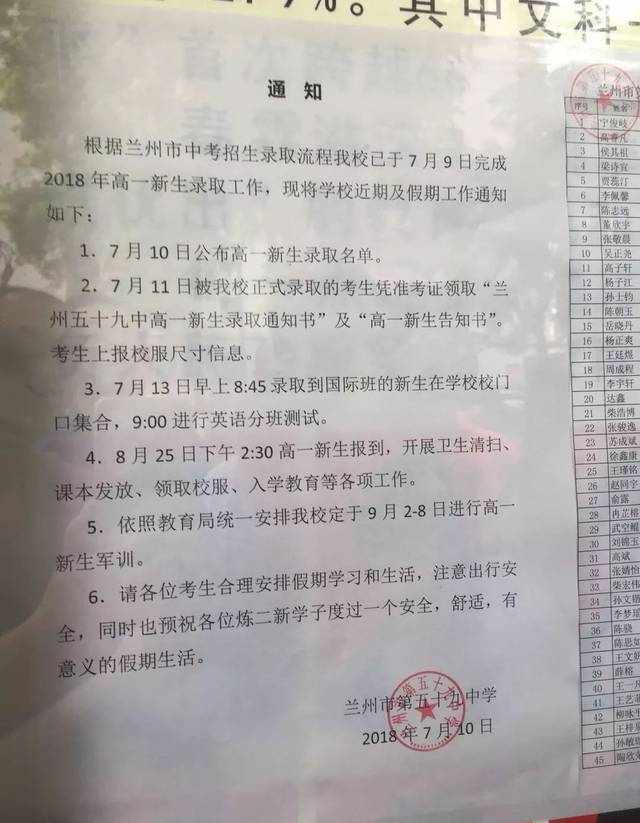 7%。其中文科
通知
根据兰州市中考招生录取流程我校已于7月9日完成
2018年高一新生录取工作，现将学校近期及假期工作通知
如下：
1．7月10日公布高一新生录取名单。
2．7月11日被我校正式录取的考生凭准考证领取“兰
州五十九中高一新生录取通知书”及“高一新生告知书”。
考生上报校服尺寸信息。
3．7月13日早上8:45录取到国际班的新生在学校校门
口集合，9:00进行英语分班测试。
4．8月25日下午2:30高一新生报到，开展卫生清扫、
课本发放、领取校服、入学教育等各项工作。
5．依照教育局统一安排我校定于9月2-8日进行高一
新生军训。
6．请各位考生合理安排假期学习和生活，注意出行安
全，同时也预祝各位炼二新学子度过一个安全，舒适，有
意义的假期生活。
兰州市第五十九中学
2018年7月10日
兰州市
序号 姓名
1 宁俊岐
2
3 侯其祖
4 梁诗宣
5 贾蕊汀
6 李佩馨
7 陈志远
8 董欣宇
9 张敬晨
10 吴正尧
11 高子轩
12 杨子江
13 孙士钧
14 陈朝玉
15 岳晓丹
16 杨正爽
17 王廷煜
18 周成程
19 李宇轩
20 达鑫
21 柴浩博
22 张骏逸
23 苏成斌
24 徐鑫康
25 王瑾铭
26 赵同宇
27 俞露
28 冉芷榕
29 武空鲲
30 刘锦玉
31 高斌
32 张婧怡
33 柴宏伟
34 孙文锴
35 李梦瑶
36 陈骁
37 陈思如
38 王文妍
39 薛榕
40 王一凡
41 王艺
42 柳咏
43 王梓
44 孙敏
45 陶欣